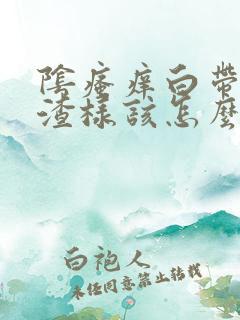 陰瘙痒白帶
渣樣該怎麼
白袍人
未经同意禁止转载